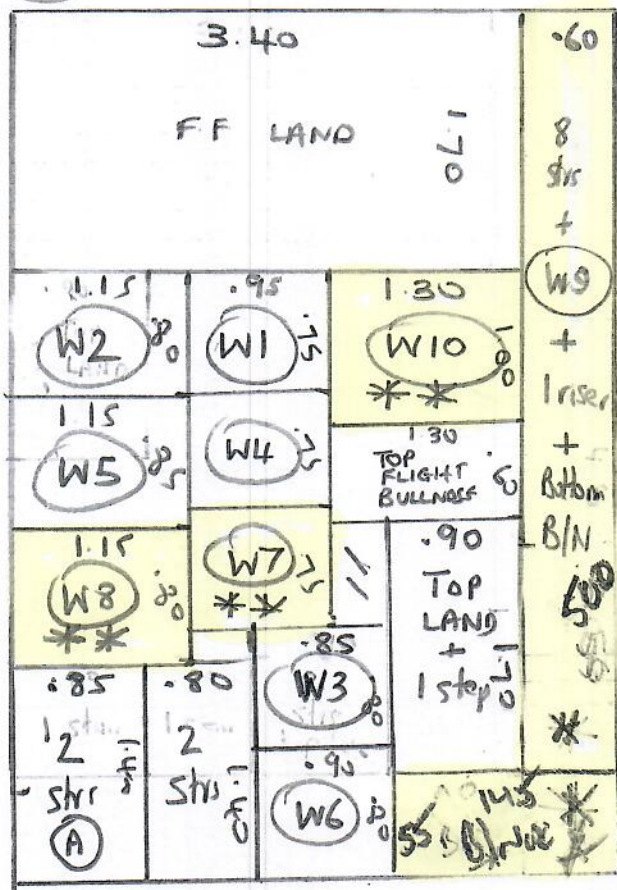 3.40
F F LAND
1.70
.60
8
Strs
+
W9
+
1 riser
+
Bottom
B/N
500
*
1.15
W2
.80
.95
W1
.75
1.30
W10
1.00
* *
1.15
W5
.85
W4
.75
1.30
TOP
FLIGHT
BULLNOSE
.60
1.15
W8
.80
* *
W7
.75
* *
//
.90
TOP
LAND
+
1 step
1.70
.85
12
Strs
A
.80
2
Strs
1.40
.85
W3
.80
.90
W6
.80
145
55
B/NOSE
*
*